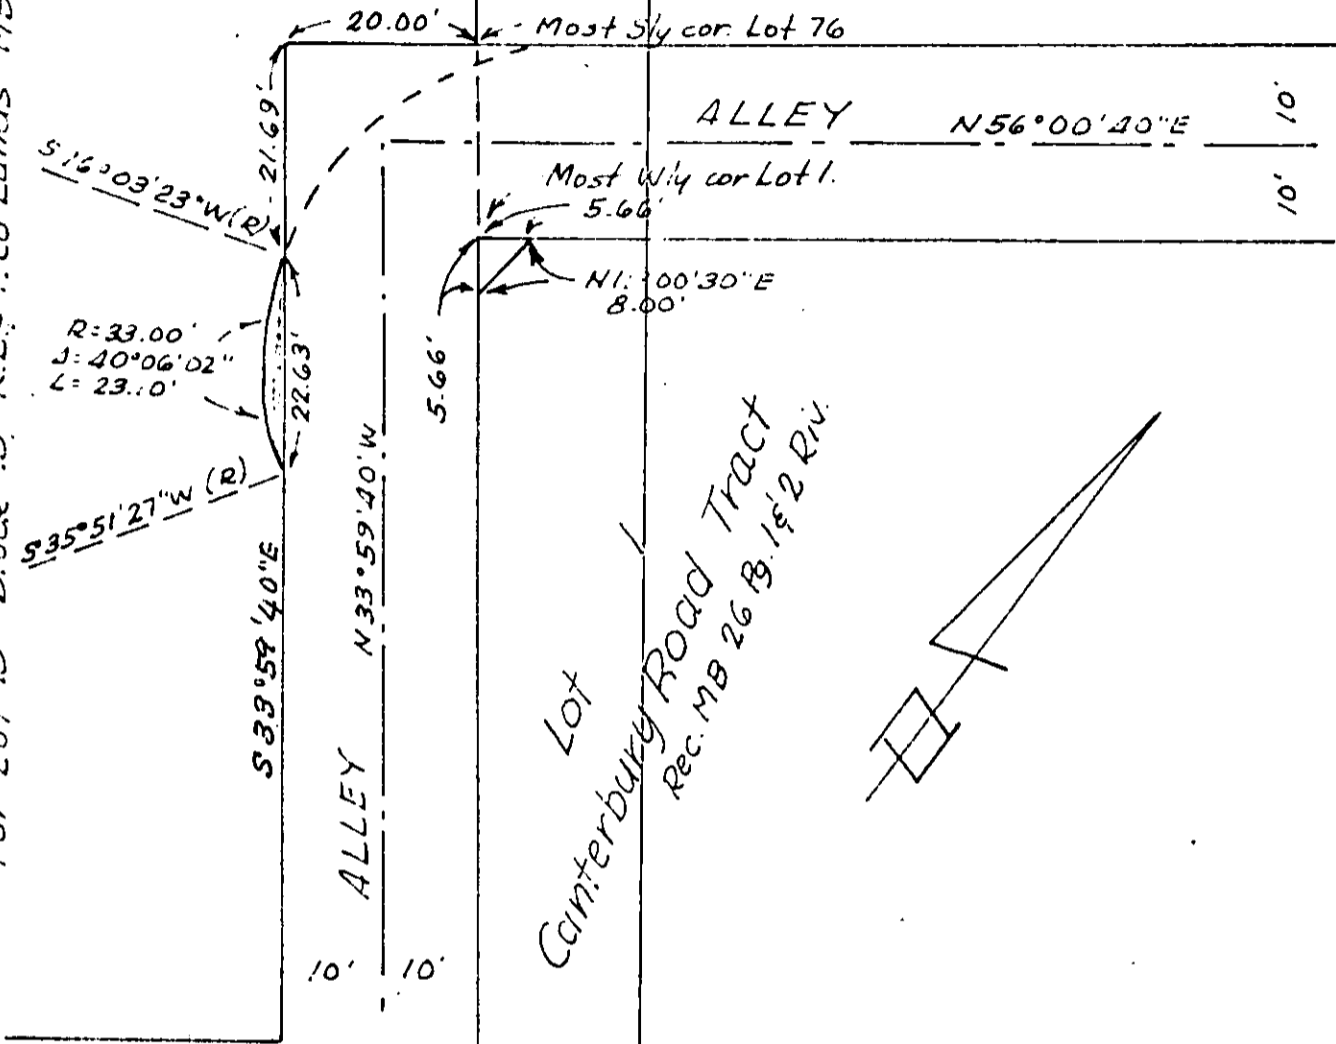 20.00'
Most S'ly cor. Lot 76
21.69'
ALLEY
N56°00'40"E
10'
10'
S16°03'23"W(R)
Most W'ly cor Lot 1.
5.66'
N1 00'30"E
8.00'
R=33.00'
Δ=40°06'02"
L=23.10'
22.63'
5.66'
S35°51'27"W (R)
S33°59'40"E
N33°59'40"W
ALLEY
10'
10'
Lot 1
Canterbury Road Tract
Rec. MB 26 Pg. 1 & 2 Riv.